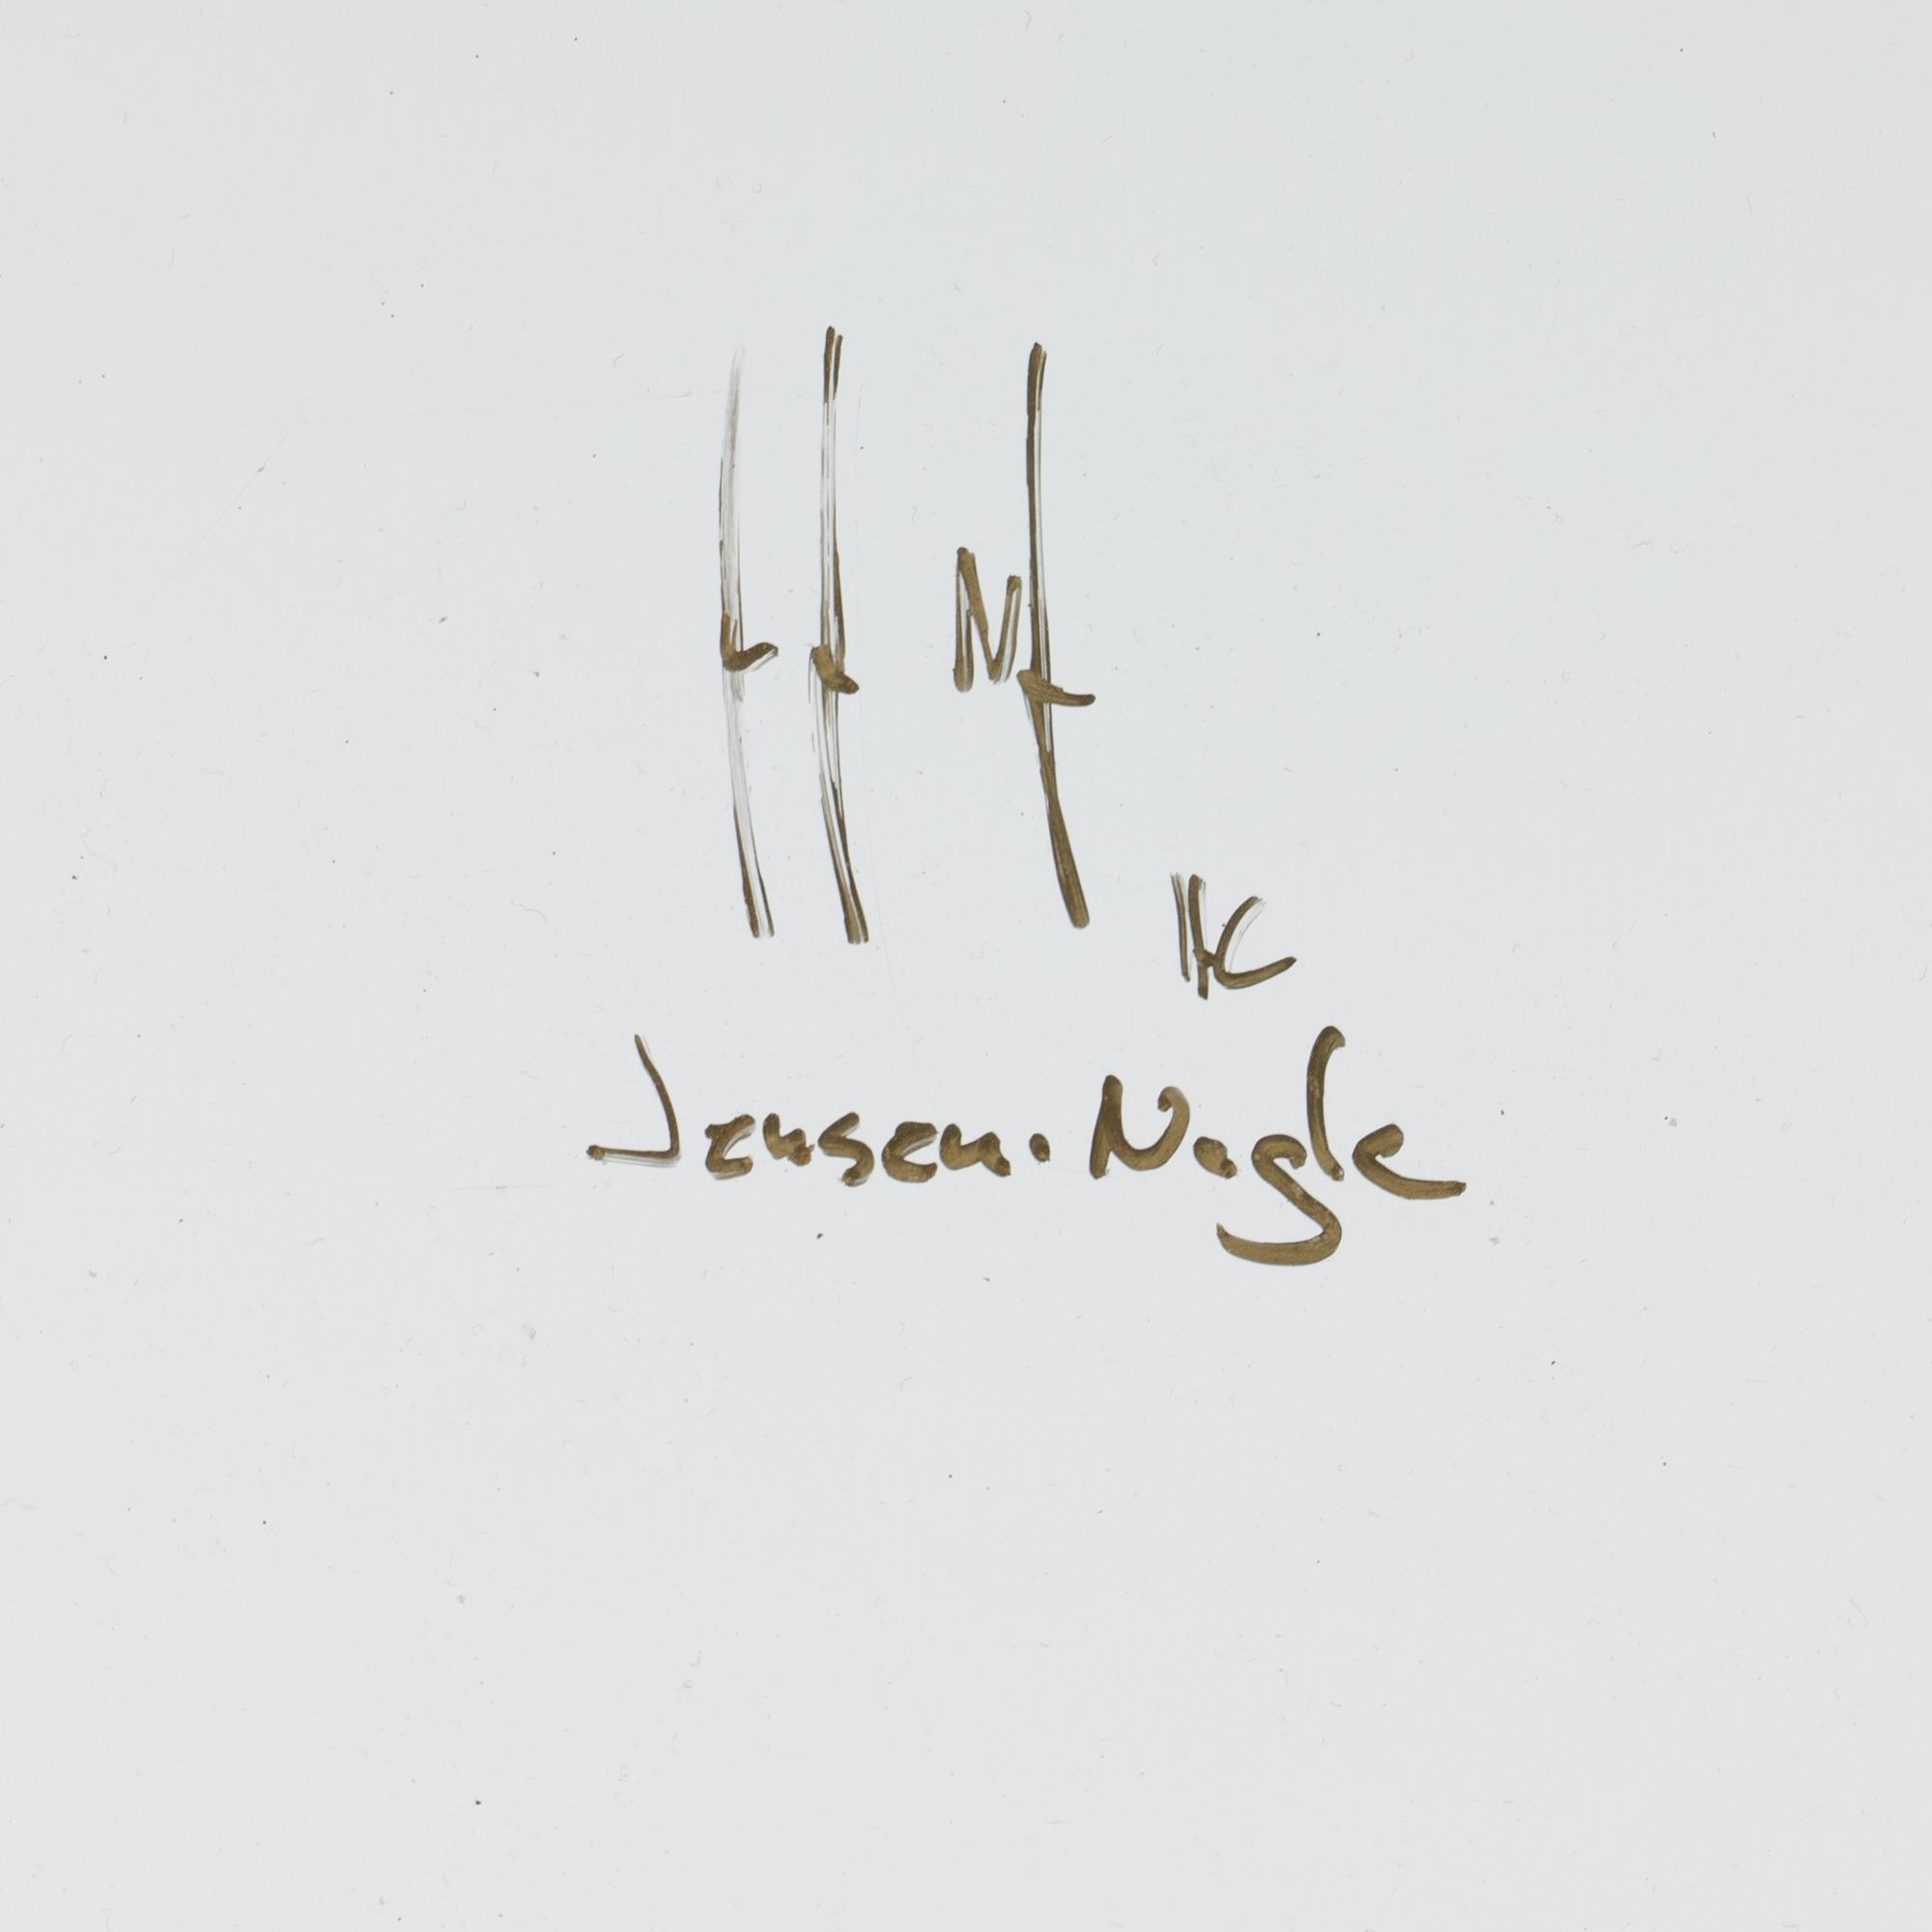 HC
Jensen-Nagle